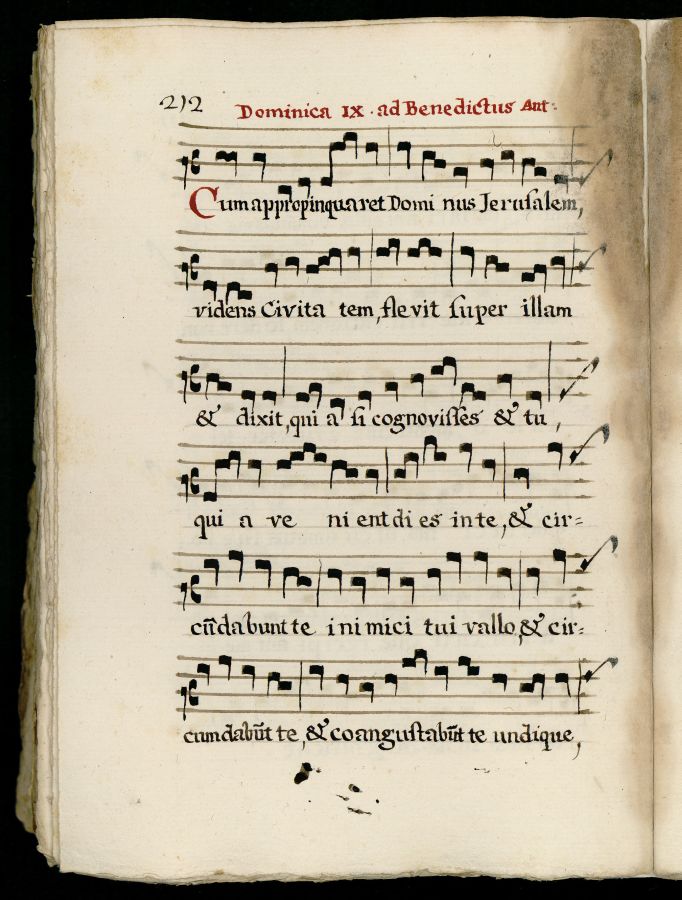 212 Dominica IX. ad Benedictus Ant:
Cum appropinquaret Domi nus Jeruſalem,
videns Civita tem, flevit ſuper illam
& dixit, qui a ſi cognoviſſes & tu,
qui a ve ni ent di es in te, & cir=
cũdabunt te inimici tui vallo, & cir=
cumdabũt te, & coanguſtabũt te undique,